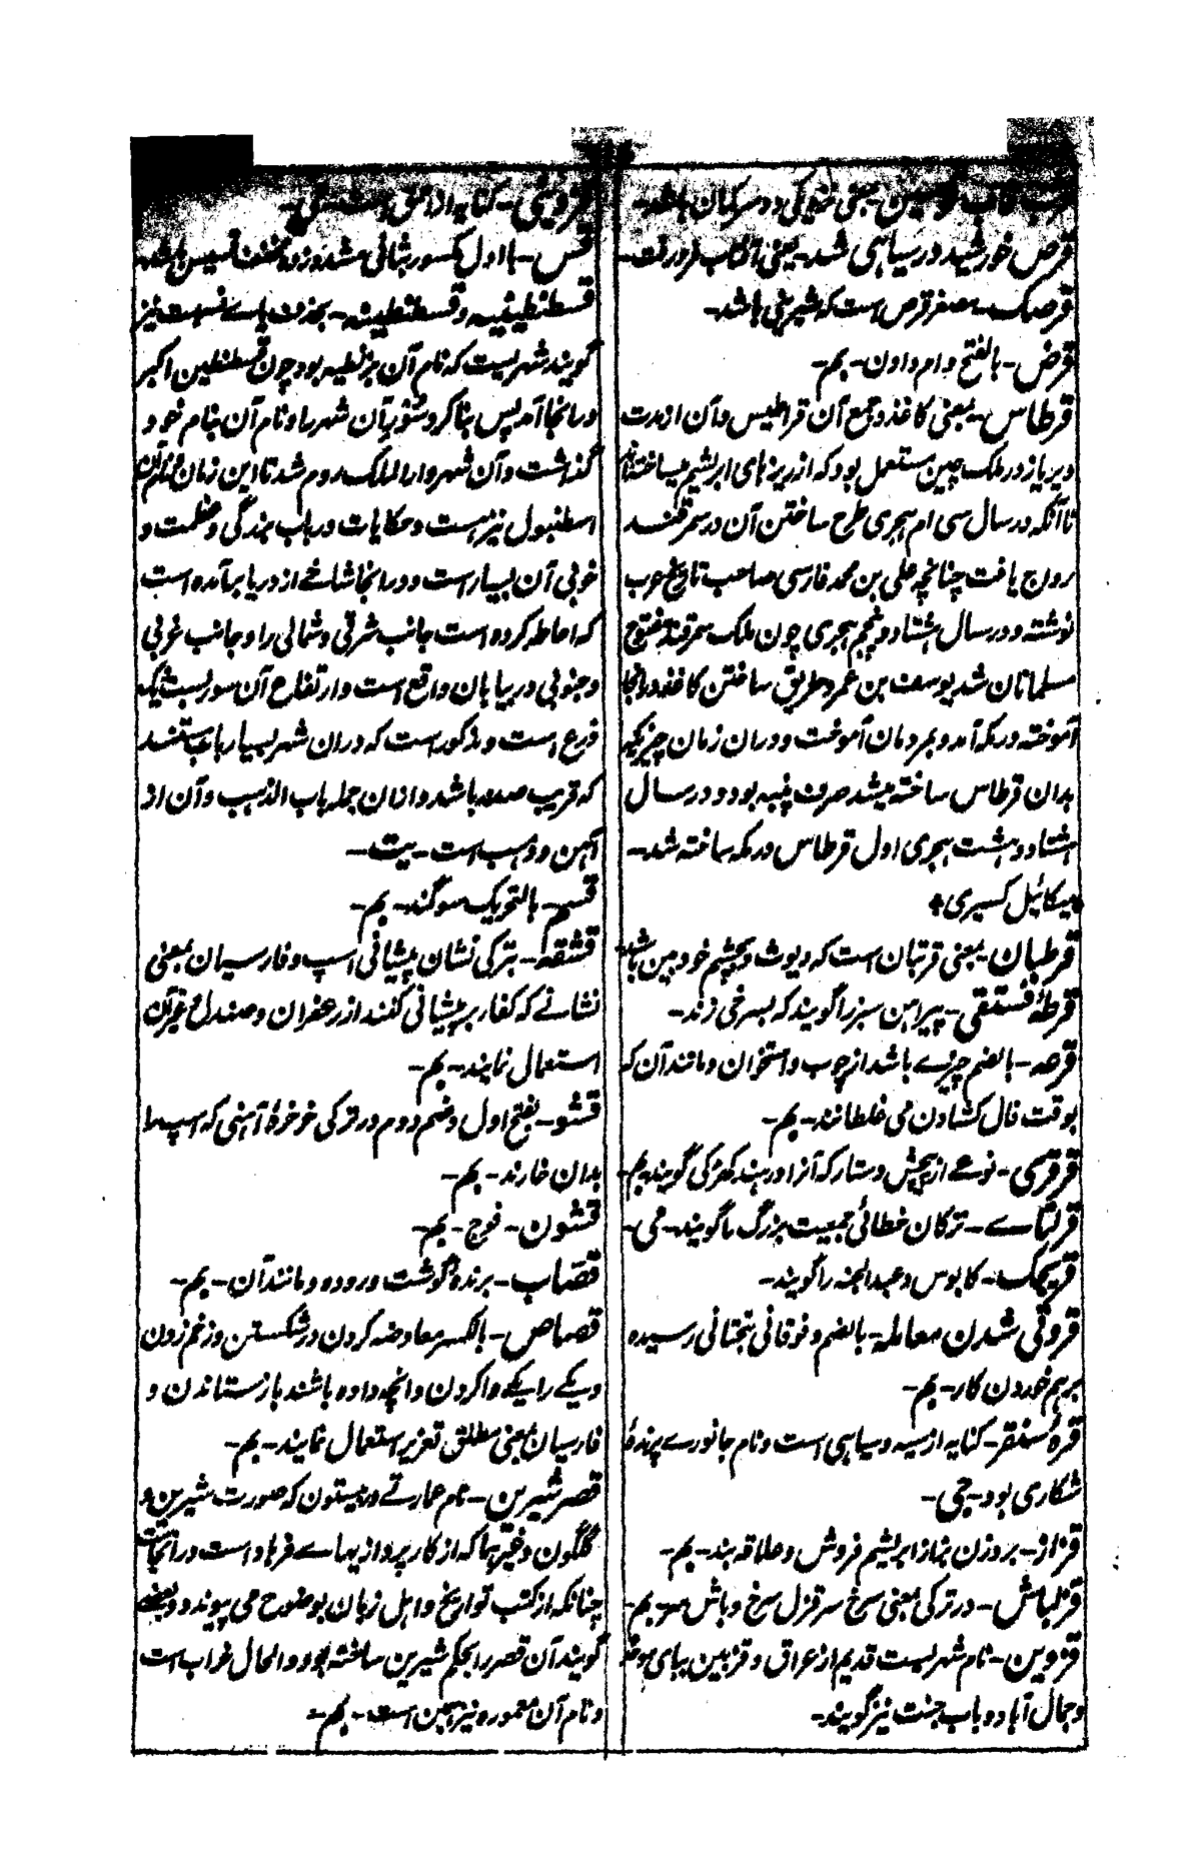 قرب قاب قوسین - یعنی نزدیکی دو سر کمان باشد -
قرص خورشید در سیاهی شد - یعنی آفتاب فرو رفت -
قرصک - مصغر قرص است که شیرینی باشد -
قرض - بالفتح وام دادن - بم -
قرطاس - بمعنی کاغذ و جمع آن قراطیس و آن از مدت
دیر باز در ملک چین مستعمل بود که از ریزهای ابریشم میساختند
تا آنکه در سال سی ام هجری طرح ساختن آن در سمرقند
رواج یافت چنانچه علی بن محمد فارسی صاحب تاریخ عرب
نوشته و در سال هشتاد و پنجم هجری چون ملک سمرقند مفتوح
مسلمانان شد یوسف بن عمر و طریق ساختن کاغذ در آنجا
آموخته در مکه آمد و بمردمان آموخت و دران زمان چیزیکه
بدان قرطاس ساخته میشد صرف پنبه بود و در سال
هشتاد و هشت هجری اول قرطاس در مکه ساخته شد -
میکائیل کسیری +
قرطبان - بمعنی قرتبان است که دیوث و بچشم خود بین باشد
قرطهٔ فستقی - پیراهن سبز را گویند که بسرخی زند -
قرعه - بالضم چیزے باشد از چوب و استخوان و مانند آن که
بوقت فال کشادن می غلطانند - بم -
قرقری - نوعے از پیچش دستار که آنرا در هند کهڑکی گویند - بم -
قرلتاے - ترکان خطائی جمعیت بزرگ را گویند - می -
قرنجک - کابوس و عبد الجنه را گویند -
قروتی شدن معامله - بالضم و فوقانی بتحتانی رسیده
برهم خوردن کار - بم -
قرهٔ سنقر - کنایه از سیه و سیاهی است و نام جانورے پرندهٔ
شکاری بود - جی -
قزاز - بروزن بزاز ابریشم فروش و علاقه بند - بم -
قزلباش - در ترکی بمعنی سرخ سر قزل سرخ و باش سر - بم -
قزوین - نام شهریست قدیم از عراق و قزبین ببای موحده
و جمال آباد و باب جنت نیز گویند -
قس - با اول مکسور بثانی مشدد زده مخفف قسیس باشد
قسطنطینیه و قسطنطینه - بحذف یاے نسبت نیز
گویند شهریست که نام آن بزنطیه بود چون قسطنطین اکبر
در انجا آمد پس بنا کرد سور آن شهر را و نام آن بنام خود
گذاشت و آن شهر دار الملک روم شد تا این زمان و نام آن
اسطنبول نیز هست و حکایات در باب بزرگی و عظمت و
خوبی آن بسیار است و در انجا شاخے از دریا برآمده است
که احاطه کرده است جانب شرقی و شمالی را و جانب غربی
و جنوبی در بیابان واقع است و ارتفاع آن سور بست و یک
ذرع است و مذکور است که دران شهر بسیار باب هستند
که قریب صد باشد و ازان جمله باب الذهب و آن از
آهن و ذهب است - بیت -
قسم - بالتحریک سوگند - بم -
قشقه - بترکی نشان پیشانی اسپ و فارسیان بمعنی
نشانے که کفار بر پیشانی کنند از زعفران و صندل و غیر آن
استعمال نمایند - بم -
قشو - بفتح اول و ضم دوم در ترکی خرخرهٔ آهنی که اسپ را
بدان خارند - بم -
قشون - فوج - بم -
قصاب - برندهٔ گوشت و روده و مانند آن - بم -
قصاص - بالکسر معاوضه کردن در شکستن و زخم زدن
و یکے را یکے وا کردن و آنچه داده باشند باز ستاندن و
فارسیان بمعنی مطلق تعزیر استعمال نمایند - بم -
قصر شیرین - نام عمارتے در بیستون که صورت شیرین و
گلگون و غیرها که از کار پردازیهاے فرهاد است در آنجاست
چنانکه از کتب تواریخ و اهل زبان بوضوح می پیوندد و بعضے
گویند آن قصر را بحکم شیرین ساخته بود و الحال خراب است
و نام آن معموره نیز همین است - بم -